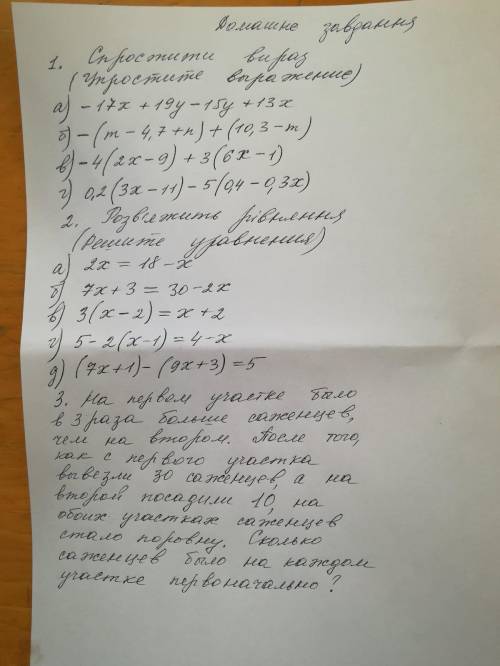 Домашнє завдання
1. Спростити вираз
(Упростите выражение)
а) -17x + 19y - 15y + 13x
б) -(m - 4,7 + n) + (10,3 - m)
в) -4(2x - 9) + 3(6x - 1)
г) 0,2(3x - 11) - 5(0,4 - 0,3x)
2. Розв'яжить рівняння
(Решите уравнения)
а) 2x = 18 - x
б) 7x + 3 = 30 - 2x
в) 3(x - 2) = x + 2
г) 5 - 2(x - 1) = 4 - x
д) (7x + 1) - (9x + 3) = 5
3. На первом участке было
в 3 раза больше саженцев,
чем на втором. После того,
как с первого участка
вывезли 30 саженцев, а на
второй посадили 10, на
обоих участках саженцев
стало поровну. Сколько
саженцев было на каждом
участке первоначально?